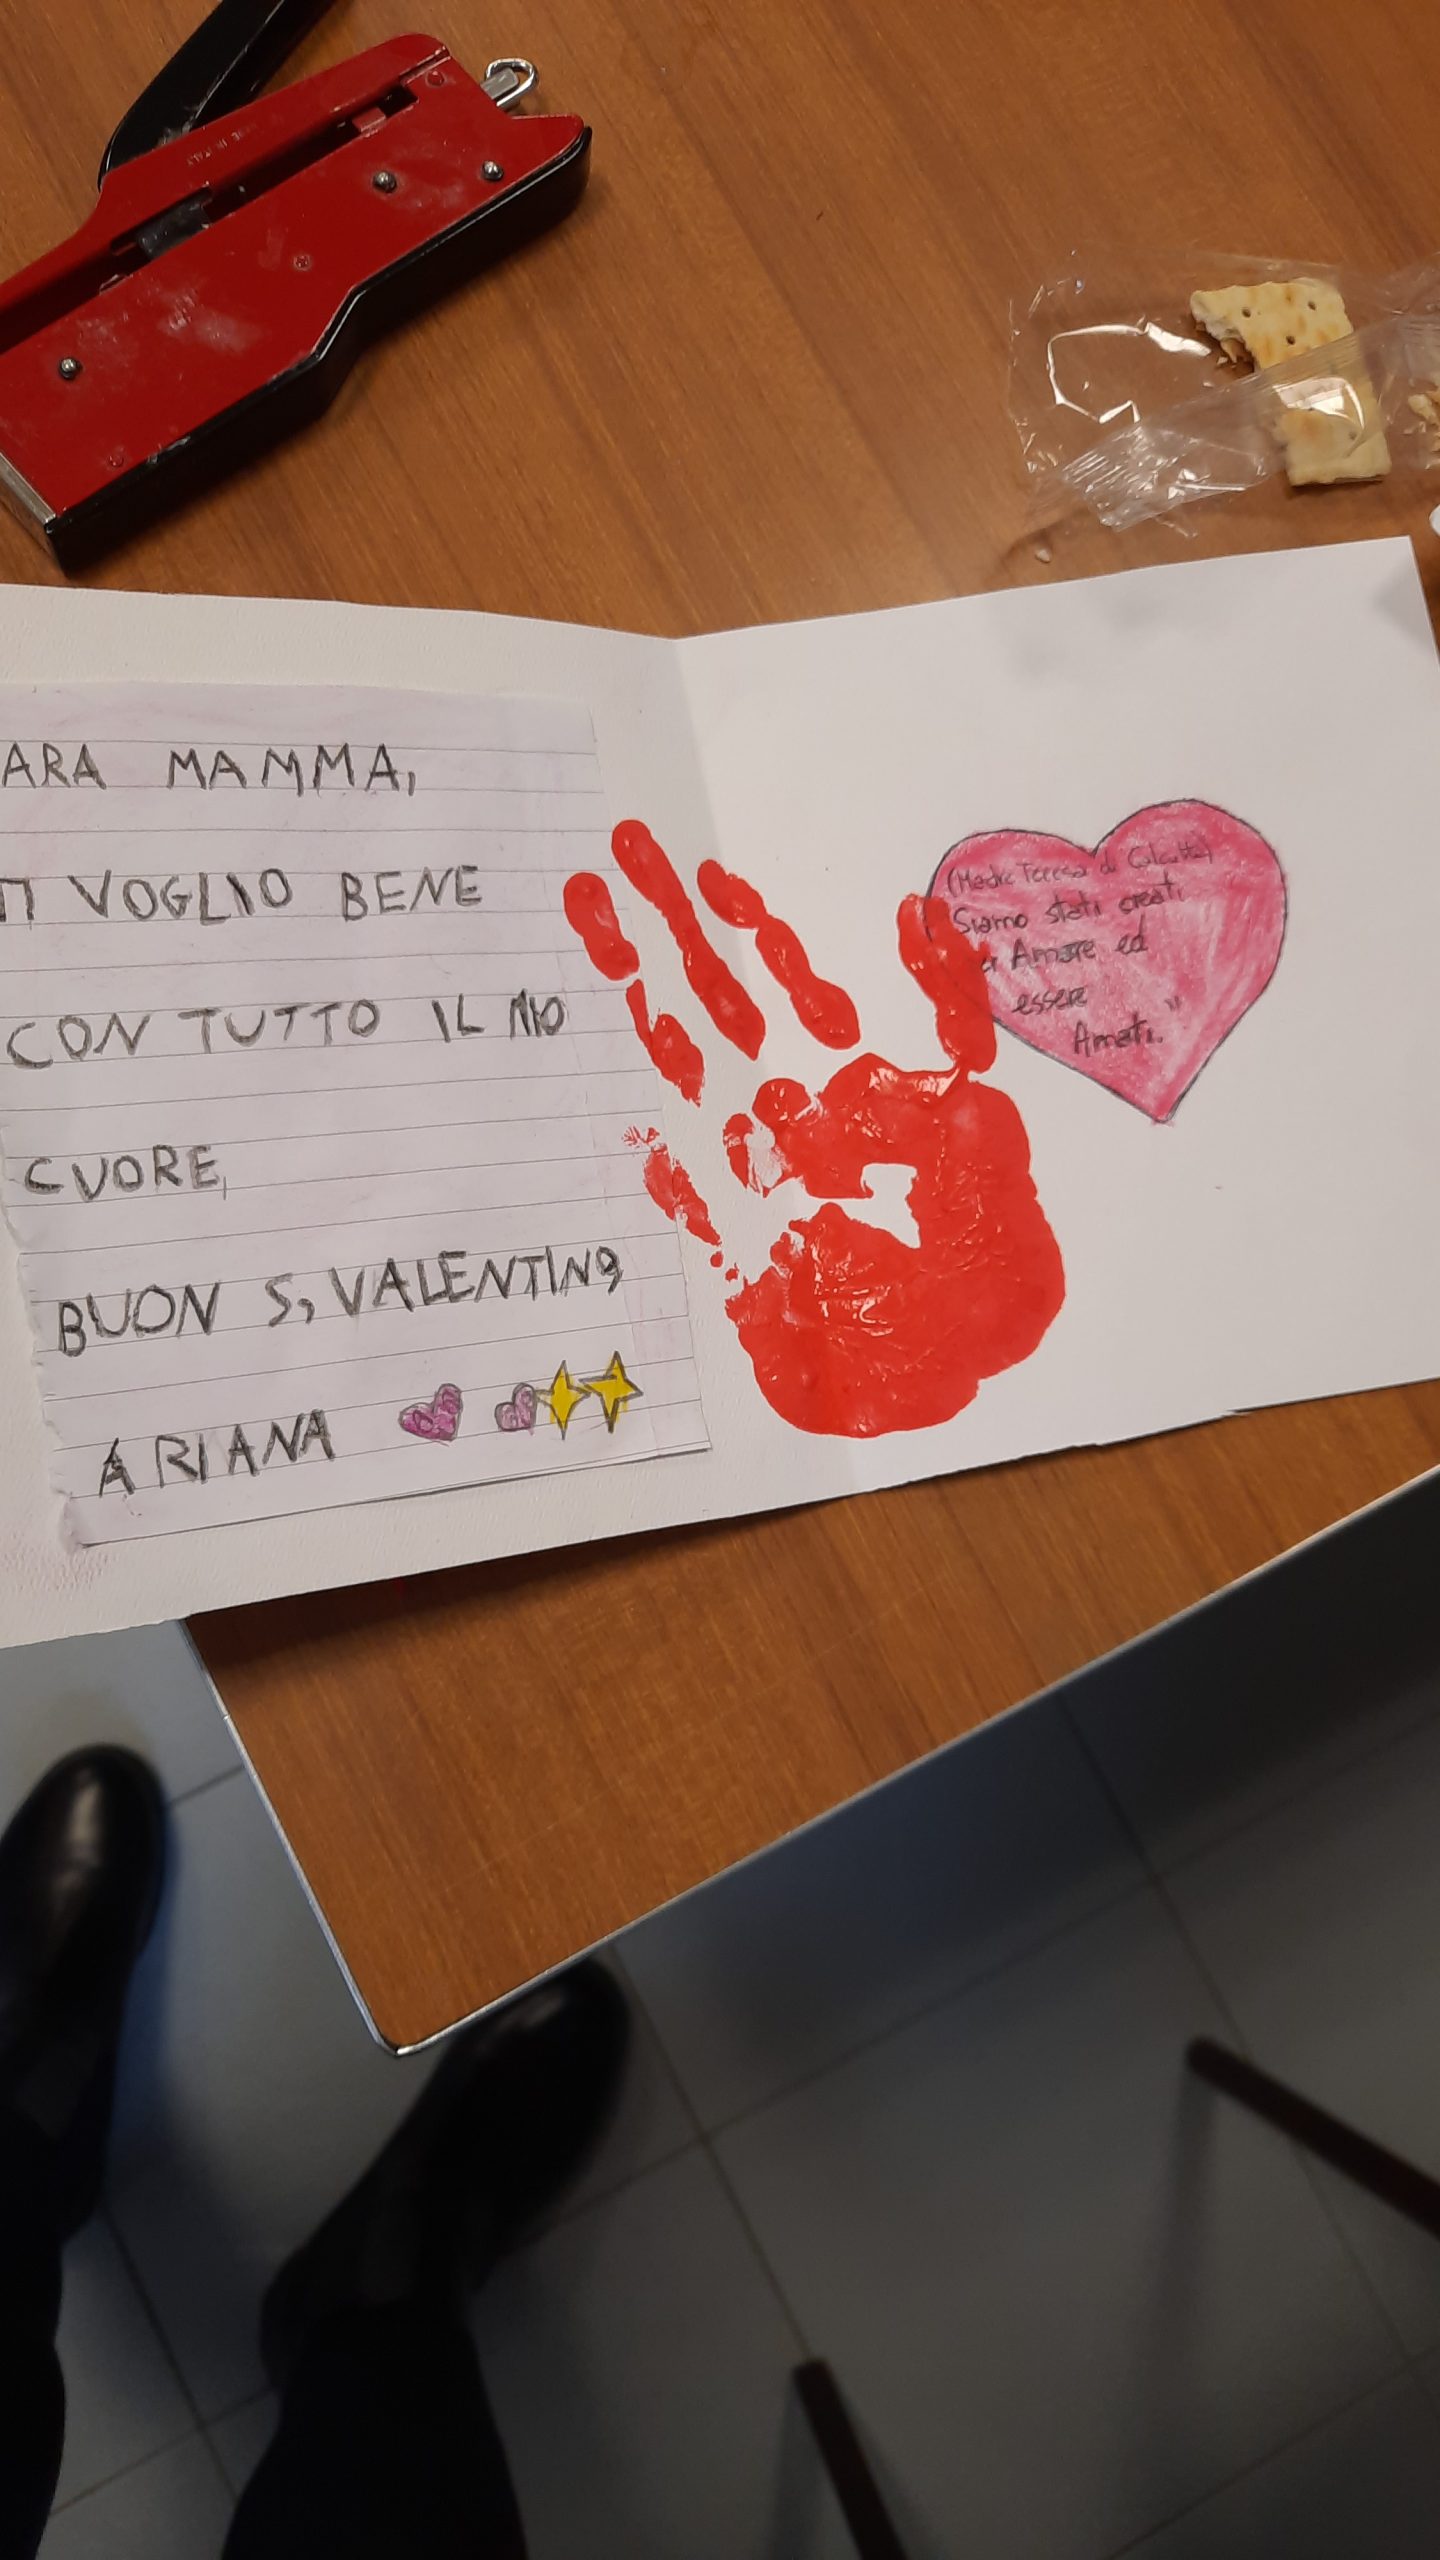 MADE IN ITALY
ARA MAMMA,
TI VOGLIO BENE
CON TUTTO IL MIO
CUORE,
BUON S, VALENTINO
ARIANA
(Madre Teresa di Calcutta)
"Siamo stati creati
er Amare ed
essere
Amati."